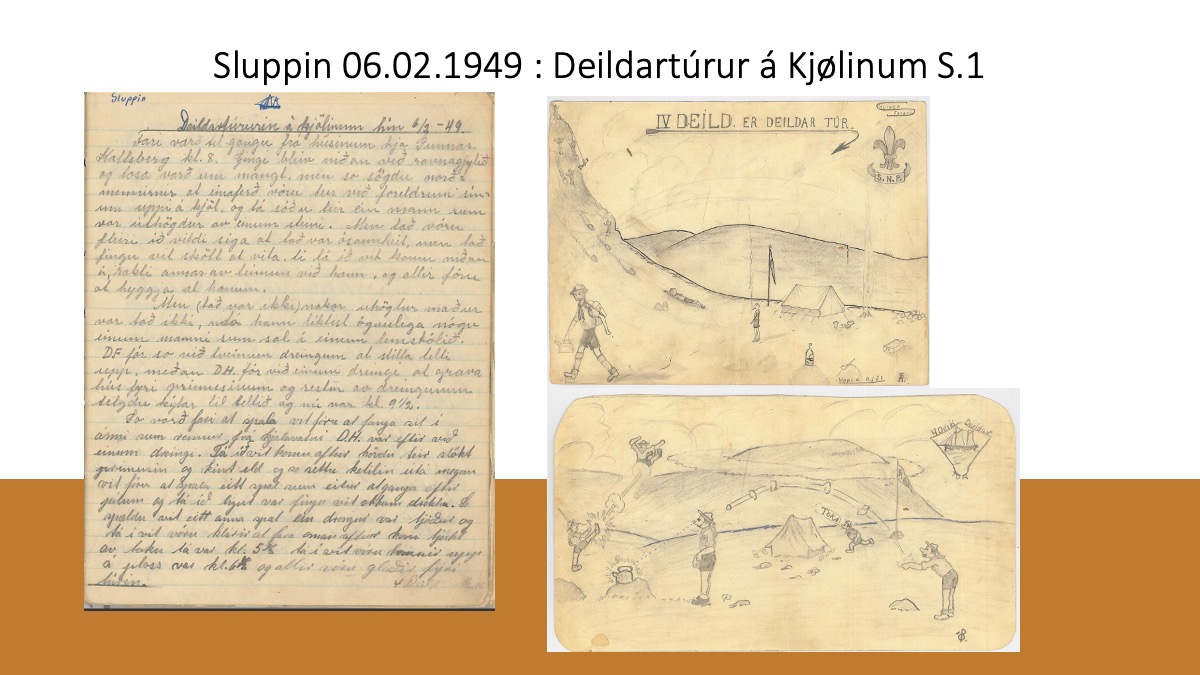 Sluppin 06.02.1949 : Deildartúrur á Kjølinum S.1
Sluppin
Deildartúrurin á kjølinum hin 6/2 - 49.
Farið varð til gongu frá húsinum hjá Gunnar
Kallsberg kl. 8. Gingið bleiv niðan við
og tosa varð um mangt, men so søgdu norð-
menninir at einaferð vóru teir við foreldrum sín-
um uppi á kjøl, og tá sóðu teir ein mann sum
var úthøgdur av einum steini. Men tað vóru
fleiri ið vildi siga at tað var ósannheit, men tað
fingu vit skjótt at vita, tí tá ið vit komu niðan
á, rakti annar av teimum við hann, og allir fóru
at hyggja at honum.
Men (tað var ikki) nakar úthøgdur maður
var tað ikki, hann líktist ógvuliga nógv
einum manni sum sat í einum lenistóli.
D.F fór so við tveimum dreingjum at stilla telti
upp, meðan D.H. fór við einum dreingi at grava
hús fyri primussinum og restin av dreingjunum
telgdu kýlar til teltið og nú var kl. 9½.
So varð farið at spæla vit fóru at fanga síl í
ánni sum rennur frá D.H. var eftir við
einum dreingi. Tá ið vit komu aftur høvdu teir sløkt
primusin og kint eld og so settu ketilin úti megan
vit fóru at spæla eitt spæl sum eitur
og tá ið lýst var fingu vit okkum drekka. So
spældu vit eitt annað spæl ein drongur var tjóður og
tá ið vit vóru klárir at fara oman aftur kom
av, tá var kl. 5 tá ið vit vóru komnir
á pláss var kl. 6 og allir vóru glaðir fyri
túrin.
IV DEILD. ER DEILDAR TÚR.
S.N.P.
UPPI Á KJØL
4DA Deildar
TAKA